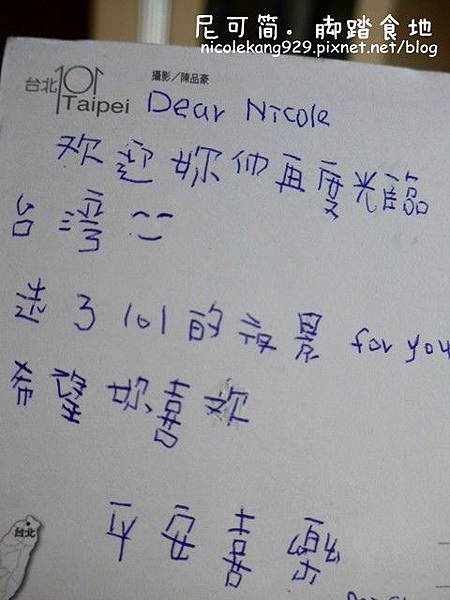 尼可简. 脚踏食地
nicolekang929.pixnet.net/blog
台北101
Taipei
攝影/陳品豪
Dear Nicole
欢迎妳们再度光臨
台灣
送了101的夜景 for you
希望妳喜欢
台北
平安喜樂